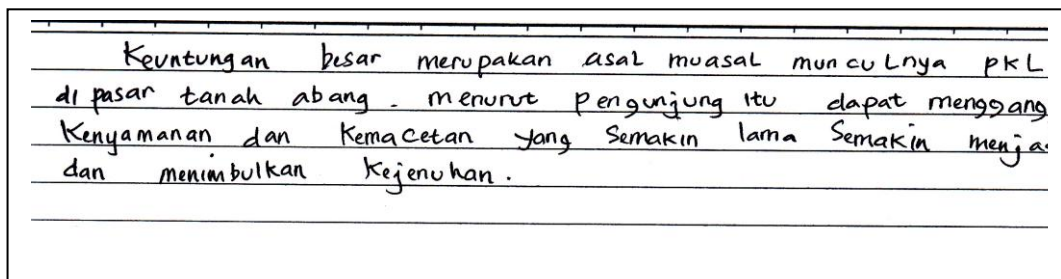 Keuntungan besar merupakan asal muasal munculnya PKL
di pasar tanah abang. menurut pengunjung itu dapat menggang
Kenyamanan dan Kemacetan yang Semakin lama Semakin menja
dan menimbulkan Kejenuhan.